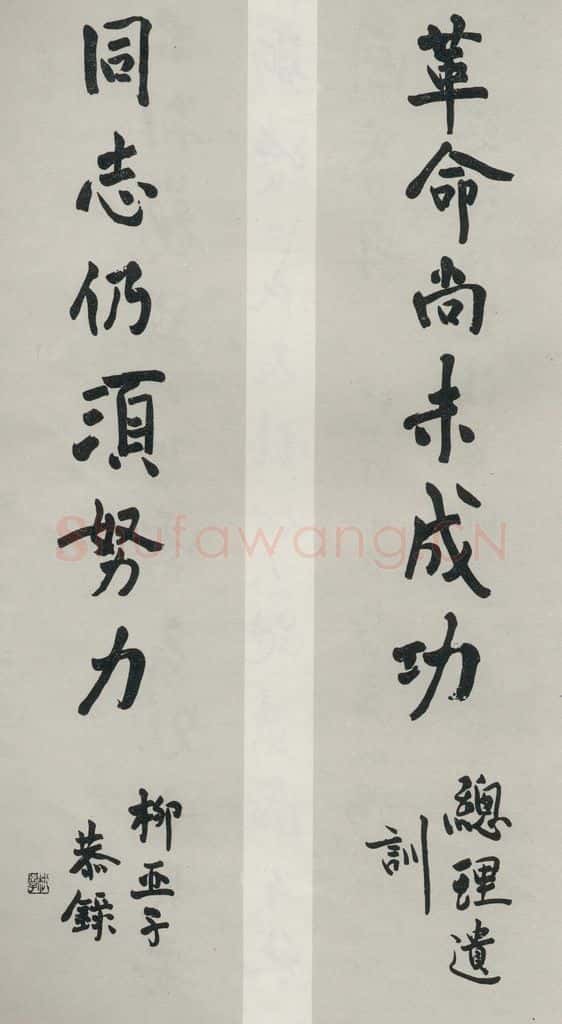 革命尚未成功
總理遺
訓
同志仍須努力
柳亞子
恭錄
Shufawang.CN